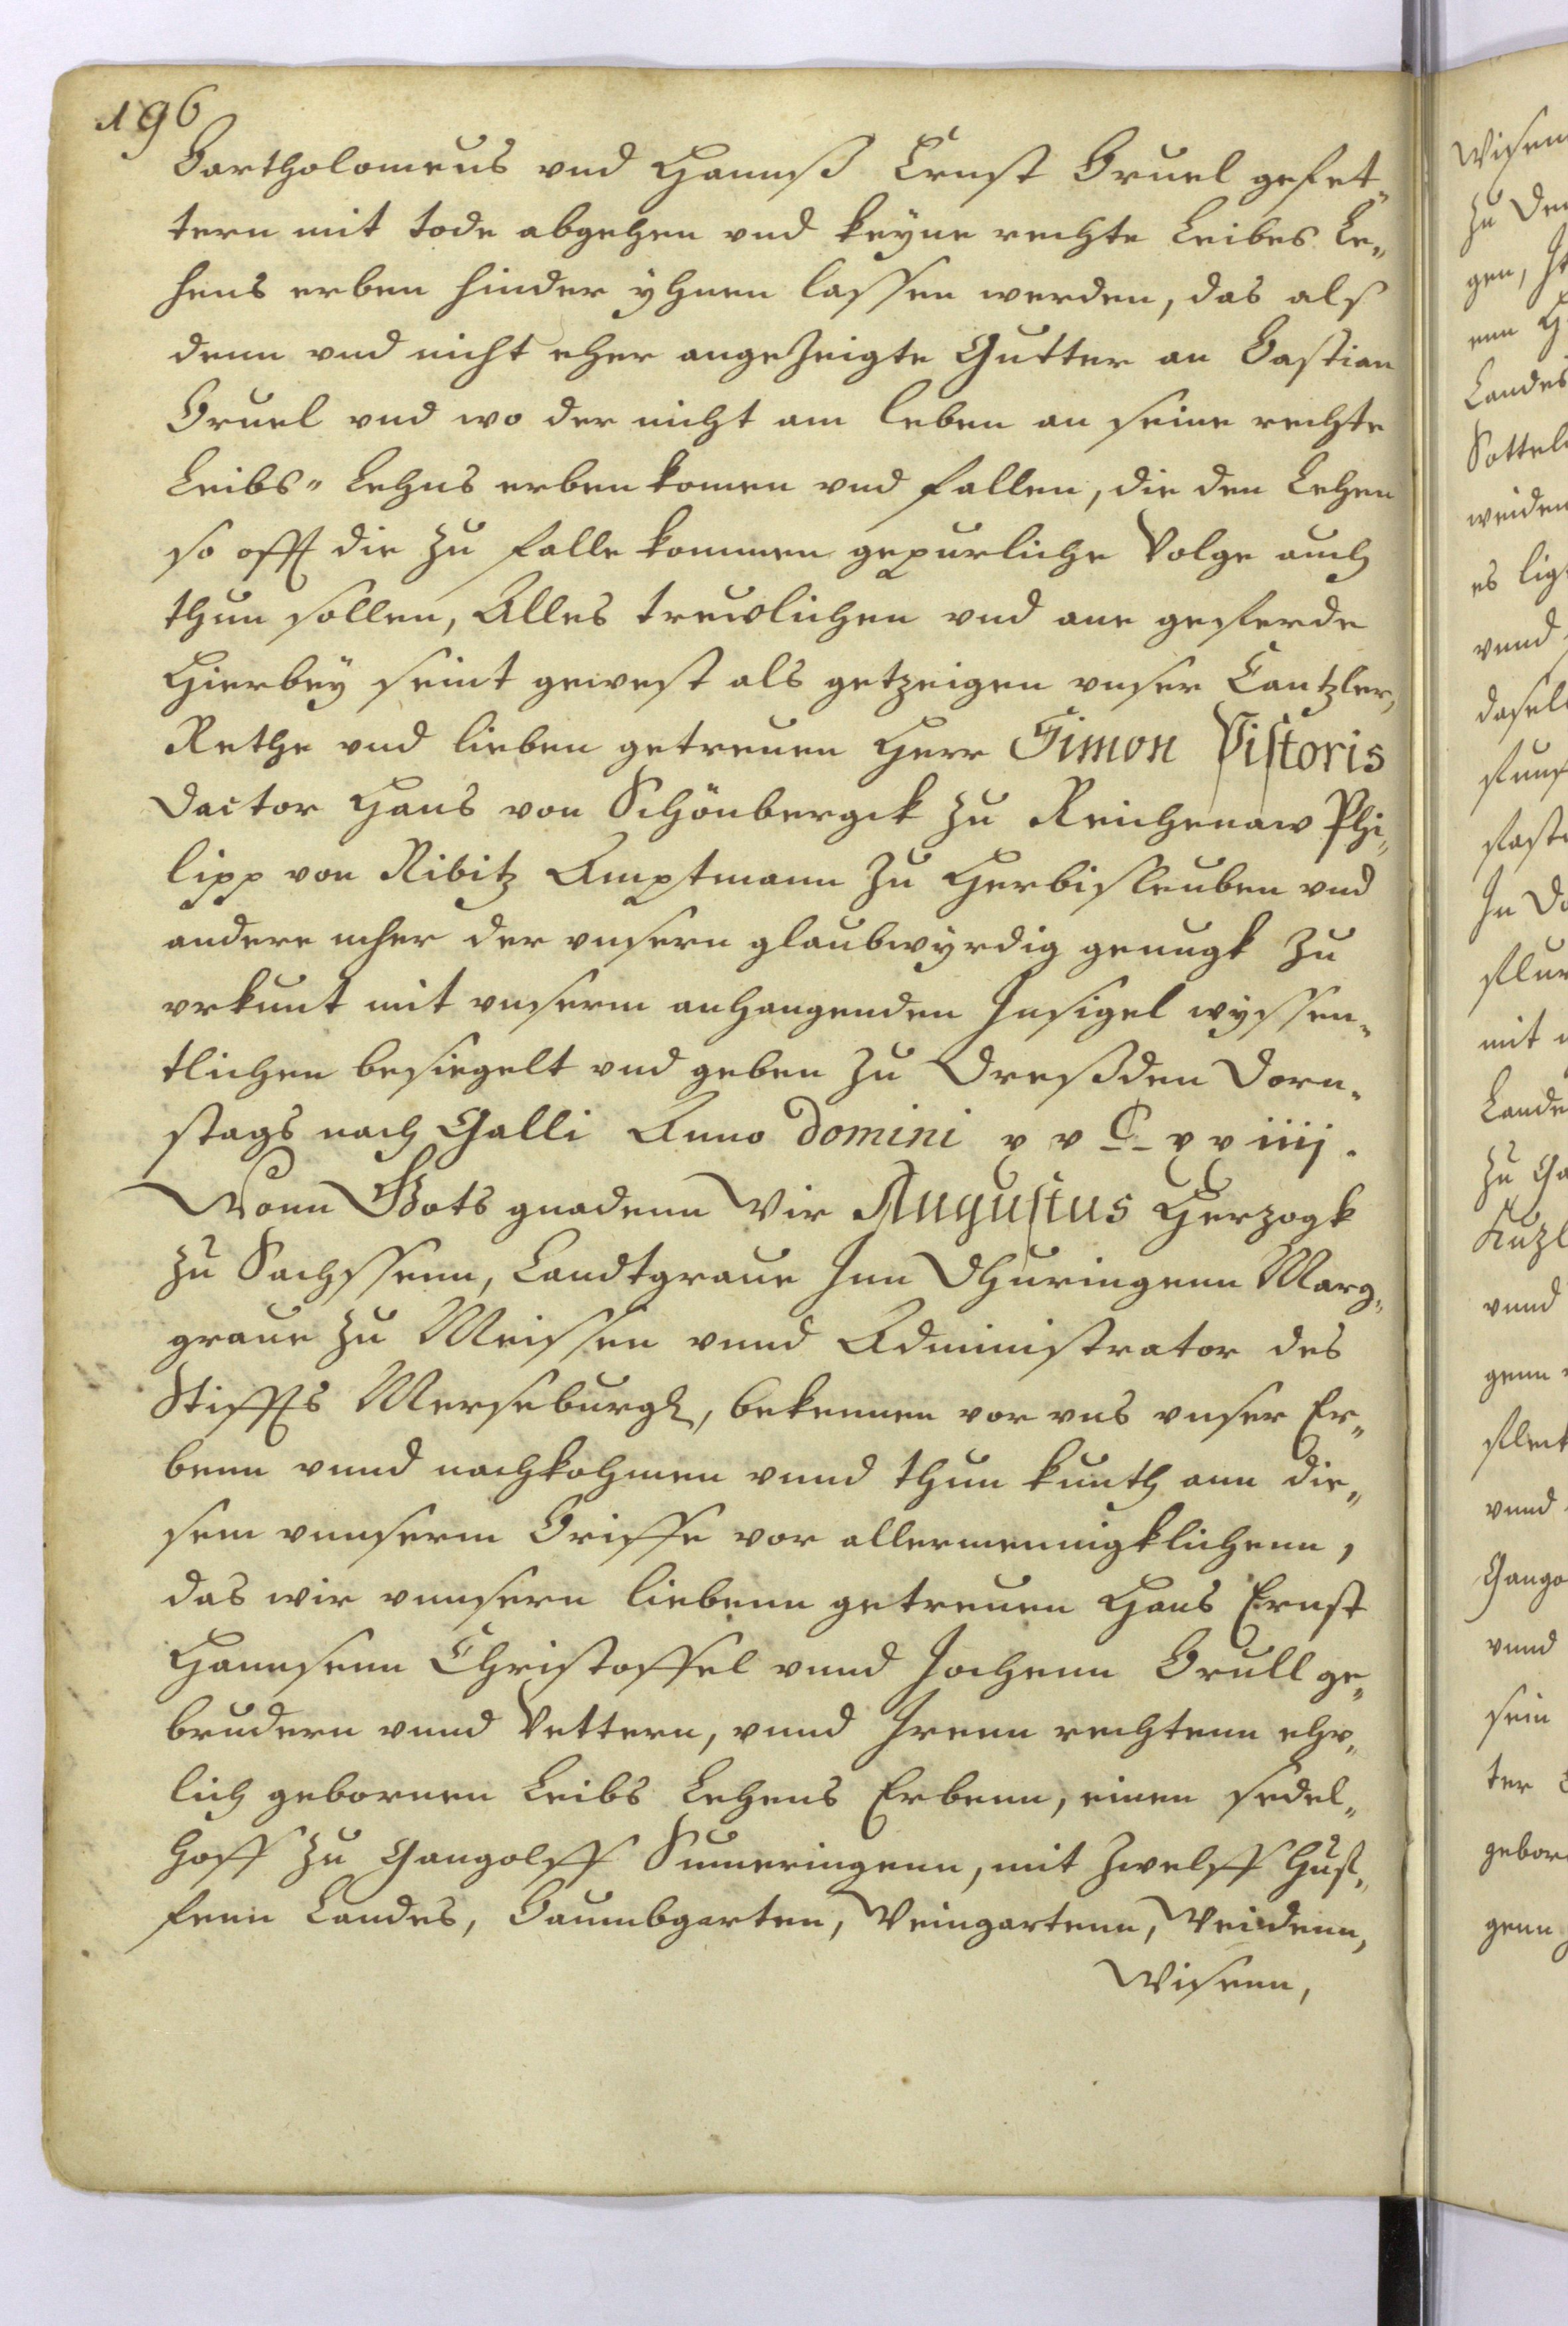 196
Bartholomeus vnd Hannß Ernst Bruel gefet„
tern mit tode abgehen vnd keyne rechte Leibes Le„
hens erben hinder yhnen lassen werden, das als
denn vnd nicht eher angezeigte Gutter an Bastian
Bruel vnd wo der nicht am leben an seine rechte
Leibs„ Lehns erben komen vnd fallen, die den Lehen
so offt die zu falle kommen gepurliche Volge auch
thun sollen, Alles trewlichen vnd ane geferde
Hierbey seint gewest als getzeigen vnser Cantzler,
Rethe vnd lieben getreuen Herr Simon Pistoris
Doctor Hans von Schönbergk zu Reichenaw Phi„
lipp von Ribitz Amptmann zu Herbisleuben vnd
andere mher der vnsern glaubwyrdig genugk zu
vrkunt mit vnserm anhangenden Insigel wyssen„
tlichen besiegelt vnd geben zu Dreßden Dorn„
stags nach Galli Anno domini x v C x x iiij.
Vonn Gots gnadenn Wir Augustus Herzogk
zu Sachssenn, Landtgraue Inn Dhuringenn Marg„
graue zu Meissen vnnd Administrator des
Stiffts Merseburgk, bekennen vor vns vnser Er„
benn vnnd nachkohmen vnnd thun kunth ann die„
sem vnnserm Briffe vor allermennigklichenn,
das wir vnnsern liebenn getreuen Hans Ernst
Hannsenn Christoffel vnnd Jochenn Brull ge„
brudern vnnd Vettern, vnnd Irenn rechtenn ehr„
lich gebornen Leibs Lehens Erbenn, einen sedel„
hoff zu Gangolff Sumeringenn, mit zwelff Huf„
fenn Landes, Baumbgarten, Weingartenn, Weidenn,
Wisenn,